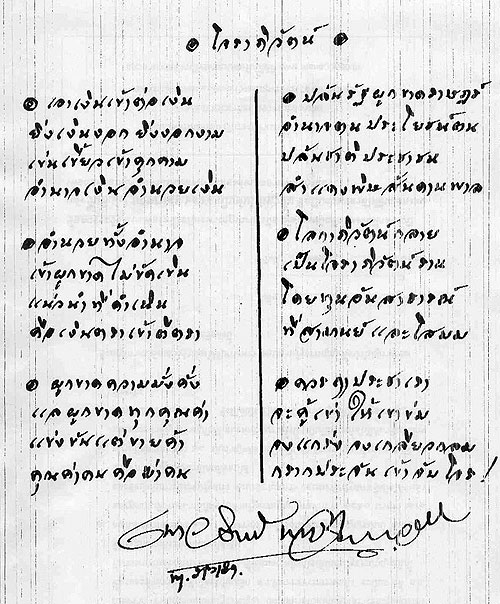 ๏ โจราภิวัตน์ ๏
๏ เอาเงินเข้าต่อเงิน
ยิ่งเงินงอก ยิ่งงอกงาม
เข่นเขี้ยวเข้าคุกคาม
อำนาจเงิน อำนวยเงิน
๏ อำนวยทั้งอำนาจ
เข้าผูกขาด ไม่ขัดเขิน
แนวนำที่ดำเนิน
คือเงินตราเข้าตีตรา
๏ ผูกขาดความมั่งคั่ง
แลผูกขาดทุกคุณค่า
แข่งขันแต่ขายค้า
คุณค่าคน คือฆ่าคน
๏ ปล้นรัฐผูกขาดราษฎร์
อำนาจตน ประโยชน์ตน
ปล้นชาติ ประชาชน
สำแดงพิษ สันดานพาล
๏ โลกาภิวัตน์กลาย
เป็นโจราภิวัตน์ราน
โดยทุนอันสาธารณ์
ที่สามานย์ และโสมม
๏ ควรคำประชาเรา
จะคู้เข่า ให้เขาข่ม
จงแกร่ง จงเกลียวกลม
กรากประจัน เข้าจับโจร!